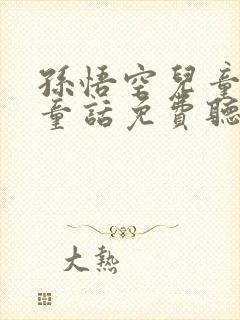 孫悟空兒童
童話免費聽
大熱